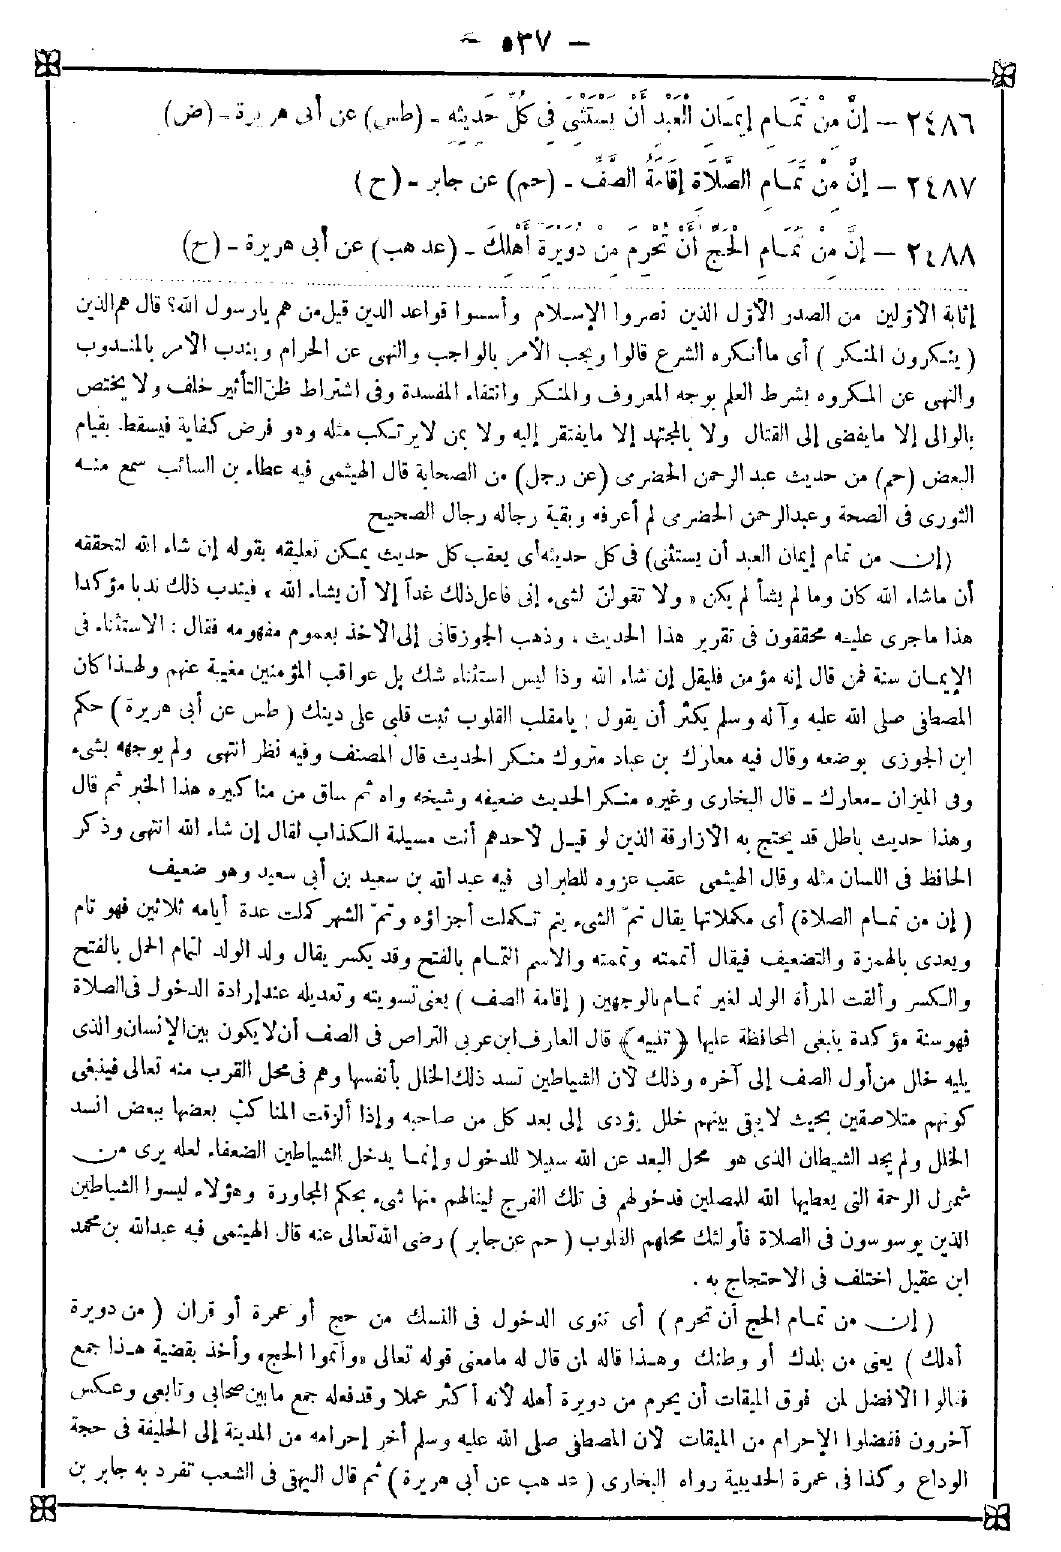 – ٥٣٧ –
٢٤٨٦ – إِنَّ مِنْ تَمَامِ إِيمَانِ الْعَبْدِ أَنْ يَسْتَثْنِىَ فِى كُلِّ حَدِيثِهِ – (طس) عن أبى هريرة – (ض)
٢٤٨٧ – إِنَّ مِنْ تَمَامِ الصَّلَاةِ إِقَامَةُ الصَّفِّ – (حم) عن جابر – (ح)
٢٤٨٨ – إِنَّ مِنْ تَمَامِ الْحَجِّ أَنْ تُحْرِمَ مِنْ دُوَيْرَةِ أَهْلِكَ – (عد هب) عن أبى هريرة – (ح)
إثابة الأولين من الصدر الأول الذين نصروا الإسلام وأسسوا قواعد الدين قيل من هم يارسول الله؟ قال هم الذين
(ينكرون المنكر) أى ما أنكره الشرع قالوا ويجب الأمر بالواجب والنهى عن الحرام ويندب الأمر بالمندوب
والنهى عن المكروه بشرط العلم بوجه المعروف والمنكر وانتفاء المفسدة وفى اشتراط ظن التأثير خلف ولا يختص
بالوالى إلا ما يفضى إلى القتال ولا بالمجتهد إلا ما يفتقر إليه ولا بمن لا يرتكب مثله وهو فرض كفاية فيسقط بقيام
البعض (حم) من حديث عبد الرحمن الحضرمى (عن رجل) من الصحابة قال الهيثمى فيه عطاء بن السائب سمع منه
الثورى فى الصحة وعبدالرحمن الحضرمى لم أعرفه وبقية رجاله رجال الصحيح
(إن من تمام إيمان العبد أن يستثنى) فى كل حديثه أى يعقب كل حديث يمكن تعليقه بقوله إن شاء الله لتحققه
أن ماشاء الله كان وما لم يشأ لم يكن «ولا تقولن لشىء إنى فاعل ذلك غداً إلا أن يشاء الله» فيندب ذلك ندبا مؤكدا
هذا ماجرى عليه محققون فى تقرير هذا الحديث، وذهب الجوزقانى إلى الأخذ بعموم مفهومه فقال: الاستثناء فى
الإيمان سنة فمن قال إنه مؤمن فليقل إن شاء الله وذا ليس استثناء شك بل عواقب المؤمنين مغيبة عنهم ولهذا كان
المصطفى صلى الله عليه وآله وسلم يكثر أن يقول: يامقلب القلوب ثبت قلبى على دينك (طس عن أبى هريرة) حكم
ابن الجوزى بوضعه وقال فيه معارك بن عباد متروك منكر الحديث قال المصنف وفيه نظر انتهى ولم يوجهه بشىء
وفى الميزان –معارك– قال البخارى وغيره منكر الحديث ضعيفه وشيخه واه ثم ساق من مناكيره هذا الخبر ثم قال
وهذا حديث باطل قد يحتج به الأزارقة الذين لو قيل لأحدهم أنت مسيلمة الكذاب لقال إن شاء الله انتهى وذكر
الحافظ فى اللسان مثله وقال الهيثمى عقب عزوه للطبرانى فيه عبد الله بن سعيد بن أبى سعيد وهو ضعيف
(إن من تمام الصلاة) أى مكملاتها يقال تمّ الشىء يتم تكملت أجزاؤه وتمّ الشهر كملت عدة أيامه ثلاثين فهو تام
ويعدى بالهمزة والتضعيف فيقال أتممته وتممته والاسم التمام بالفتح وقد يكسر يقال ولد الولد لتمام الحمل بالفتح
والكسر وألقت المرأة الولد لغير تمام بالوجهين (إقامة الصف) يعنى تسويته وتعديله عند إرادة الدخول فى الصلاة
فهو سنة مؤكدة ينبغى المحافظة عليها ﴿تنبيه﴾ قال العارف ابن عربى التراص فى الصف أن لا يكون بين الإنسان والذى
يليه خال من أول الصف إلى آخره وذلك لأن الشياطين تسد ذلك الخلل بأنفسها وهم فى محل القرب منه تعالى فينبغى
كونهم متلاصقين بحيث لا يبقى بينهم خلل يؤدى إلى بعد كل من صاحبه وإذا ألزقت المناكب بعضها ببعض انسد
الخلل ولم يجد الشيطان الذى هو محل البعد عن الله سبيلا للدخول وإنما يدخل الشياطين الضعفاء لعله يرى من
شمول الرحمة التى يعطيها الله للمصلين فدخولهم فى تلك الفرج لينالهم منها شىء بحكم المجاورة وهؤلاء ليسوا الشياطين
الذين يوسوسون فى الصلاة فأولئك محلهم القلوب (حم عن جابر) رضى الله تعالى عنه قال الهيثمى فيه عبدالله بن محمد
ابن عقيل اختلف فى الاحتجاج به.
(إن من تمام الحج أن تحرم) أى تنوى الدخول فى النسك من حج أو عمرة أو قران (من دويرة
أهلك) يعنى من بلدك أو وطنك وهذا قاله لمن قال له مامعنى قوله تعالى «وأتموا الحج» وأخذ بقضية هذا جمع
فقالوا الأفضل لمن فوق الميقات أن يحرم من دويرة أهله لأنه أكثر عملا وقد فعله جمع ما بين صحابى وتابعى وعكس
آخرون ففضلوا الإحرام من الميقات لأن المصطفى صلى الله عليه وسلم أخر إحرامه من المدينة إلى الحليفة فى حجة
الوداع وكذا فى عمرة الحديبية رواه البخارى (عد هب عن أبى هريرة) ثم قال البيهقى فى الشعب تفرد به جابر بن